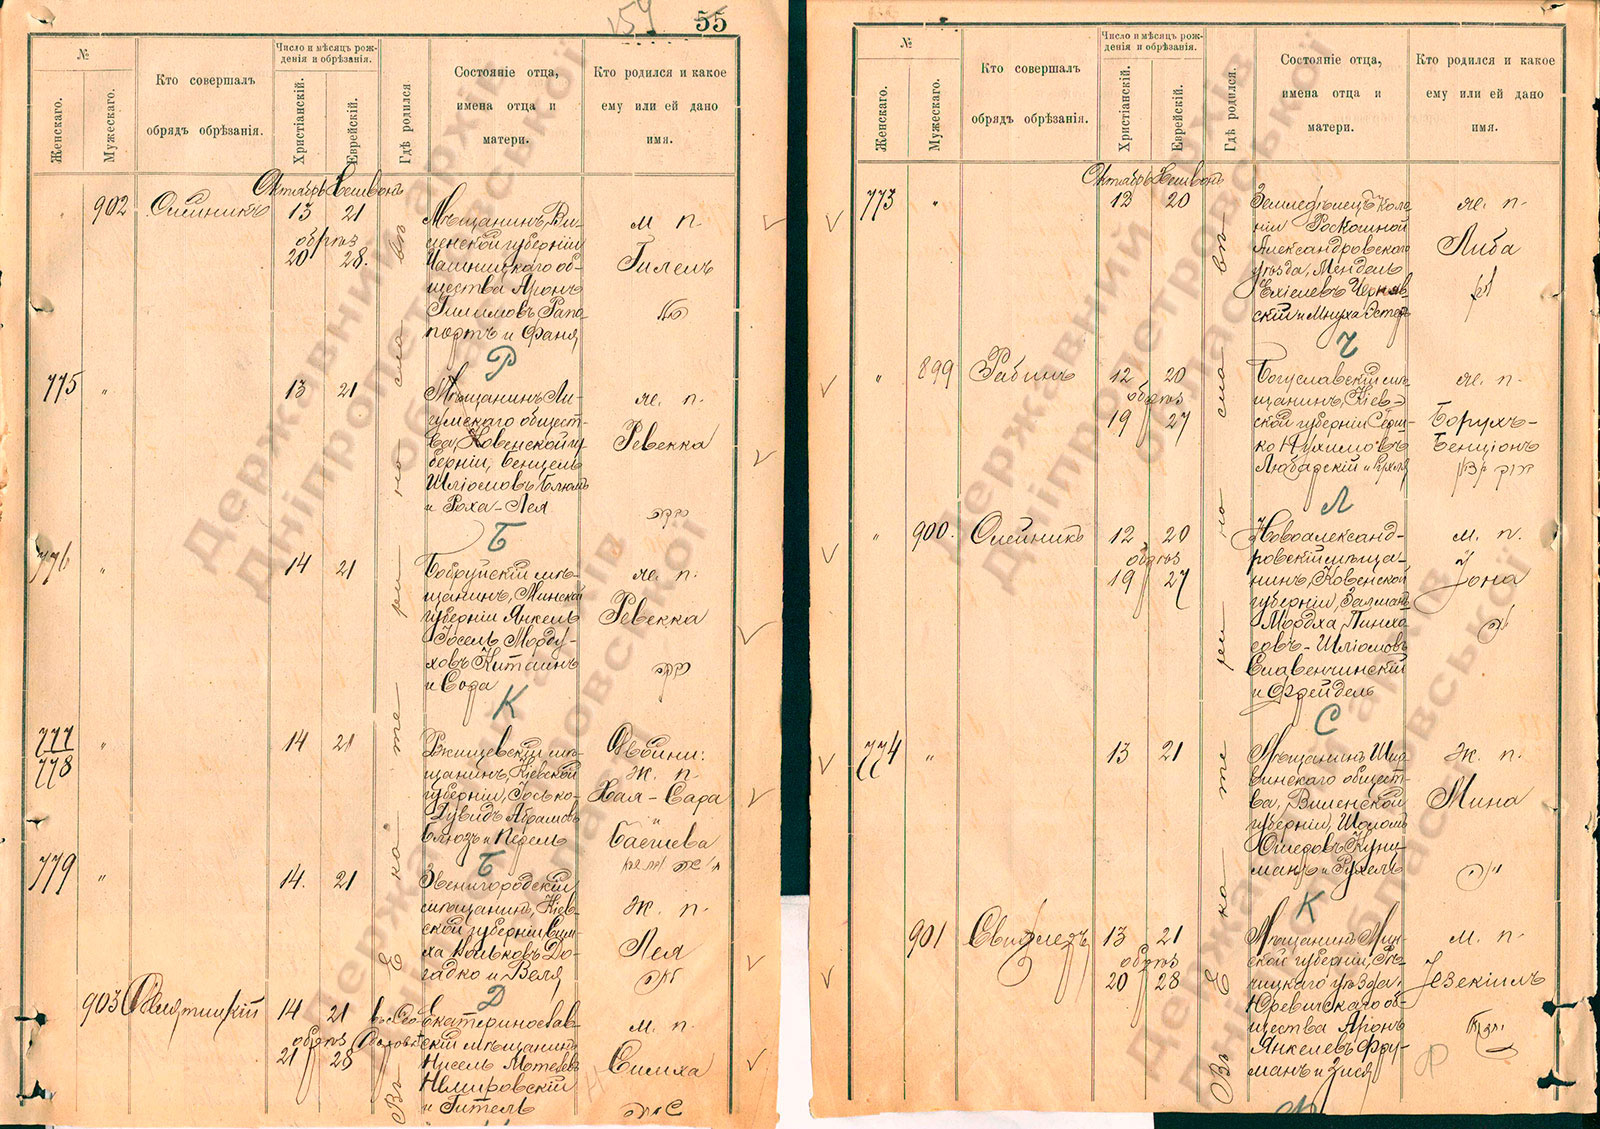 159
55
№
Женскаго.
Мужескаго.
Кто совершалъ
обрядъ обрѣзанія.
Число и мѣсяцъ рож-
денія и обрѣзанія.
Христіанскій.
Еврейскій.
Гдѣ родился
Состояніе отца,
имена отца и
матери.
Кто родился и какое
ему или ей дано
имя.
Октябрь Хешвонъ
902 Олейникъ 13 21
обрѣз
20 28.
Мѣщанинъ, Ви-
ленской губерніи
Чашницкаго об-
щества Аронъ
Гилимовъ Рапо-
портъ и Фаня
м. п.
Гилель
Р
775 " 13 21
Мѣщанинъ, Ли-
гумскаго общест-
ва, Ковенской гу-
берніи, Бенцель
Шліомовъ Блюмъ
и Роха-Лея
же. п.
Ревекка
רבקה
Б
776 " 14 21
Бобруйскій мѣ-
щанинъ, Минской
губерніи Янкель
Іосель Морду-
ховъ Китаинъ
и Сора
же. п.
Ревекка
רבקה
К
777
778
" 14 21
Ржищевскій мѣ-
щанинъ, Кіевской
губерніи, Іосько-
Дувидъ Абрамовъ
Блюзъ и Перель
Двойни:
ж. п.
Хая-Сара
и
Басшева
Б
779 " 14. 21
Звенигородскій
мѣщанинъ, Кіев-
ской губерніи Сим-
ха Волковъ До-
гадко и Веля
ж. п.
Лея
לאה
Д
903 14 21
обрѣз
21 28
Екатеринослав-
скій мѣщанинъ
Нисель Мотелевъ
Немировскій
и Гитель
м. п.
Симха
שמחה
Въ Екатеринославѣ
№
Женскаго.
Мужескаго.
Кто совершалъ
обрядъ обрѣзанія.
Число и мѣсяцъ рож-
денія и обрѣзанія.
Христіанскій.
Еврейскій.
Гдѣ родился.
Состояніе отца,
имена отца и
матери.
Кто родился и какое
ему или ей дано
имя.
Октябрь Хешвонъ
773 " 12 20
Земледѣлецъ коло-
ніи Роскошной
Александровскаго
уѣзда, Мендель
Ехіелевъ Черняв-
скій и Мнуха Эстеръ
же. п.
Либа
Ч
" 899 Рабинъ 12 20
обрѣз
19 27
Богуславскій мѣ-
щанинъ, Кіев-
ской губерніи Сруль-
ко Нухимовъ
Любарскій и Рухля
же. п.
Борухъ-
Бенціонъ
ברוך בן ציון
Л
" 900. Олейникъ 12 20
обрѣз
19 27
Новоалександ-
ровскій мѣща-
нинъ, Ковенской
губерніи, Залманъ
Мордха, Пинхо-
совъ-Шліомовъ
Славенчинскій
и Фрейдель
м. п.
Іона
יונה
С
774 " 13 21
Мѣщанинъ Шир-
винскаго общест-
ва, Виленской
губерніи, Шоломъ
Юделовъ Куни-
манъ и Рухель
ж. п.
Мина
К
901 13 21
обрѣз
20 28
Мѣщанинъ Мин-
ской губерніи, Рѣ-
чицкаго уѣзда,
Юревичскаго об-
щества Аронъ
Янкелевъ Фру-
манъ и Зися
м. п.
Іезекіиль
Ф
Въ Екатеринославѣ
Державний архів
Дніпропетровської
області